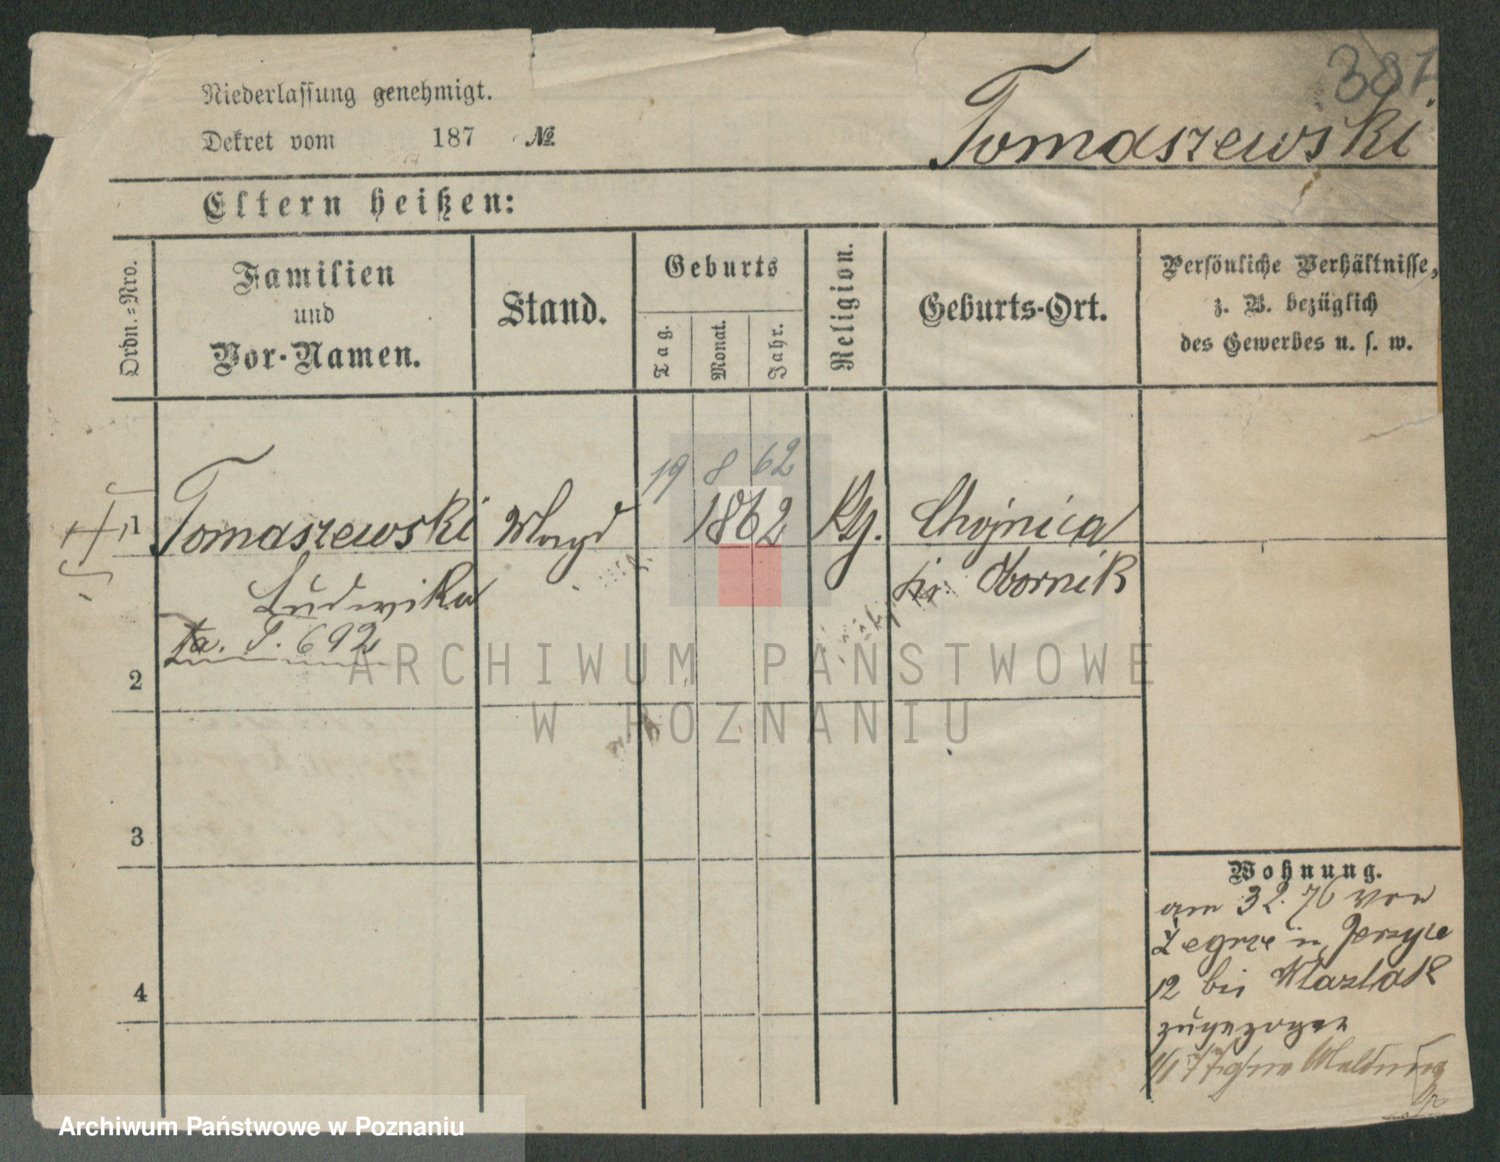 387
Niederlassung genehmigt.
Dekret vom 187 №
Tomaszewski
Eltern heißen:
Ordn.=Nro.
Familien
und
Vor-Namen.
Stand.
Geburts
Tag.
Monat.
Jahr.
Religion.
Geburts-Ort.
Persönliche Verhältnisse,
z. B. bezüglich
des Gewerbes u. s. w.
19 8 62
1 Tomaszewski Magd 1862 Chojnica
Ludwika Obornik
ta. P. 692
2
3
4
Wohnung.
am 3 2. 76 von
Żegrze n. Jerzyce
12 bei
zugezogen
ARCHIWUM PAŃSTWOWE
W POZNANIU
Archiwum Państwowe w Poznaniu